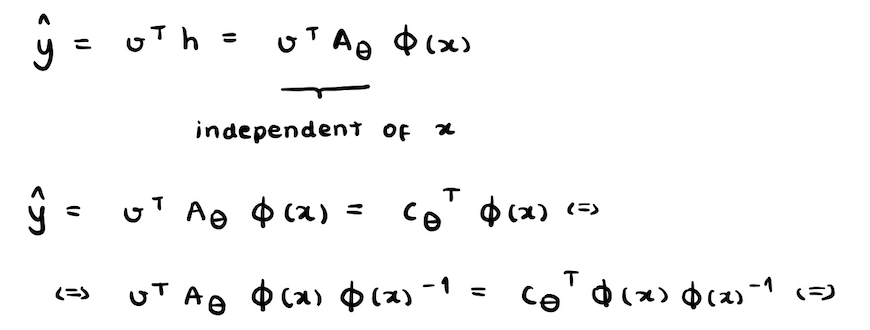 ŷ = υᵀ h = υᵀ A_θ ϕ(x)
independent of x
ŷ = υᵀ A_θ ϕ(x) = c_θᵀ ϕ(x) <=>
<=> υᵀ A_θ ϕ(x) ϕ(x)⁻¹ = c_θᵀ ϕ(x) ϕ(x)⁻¹ <=>